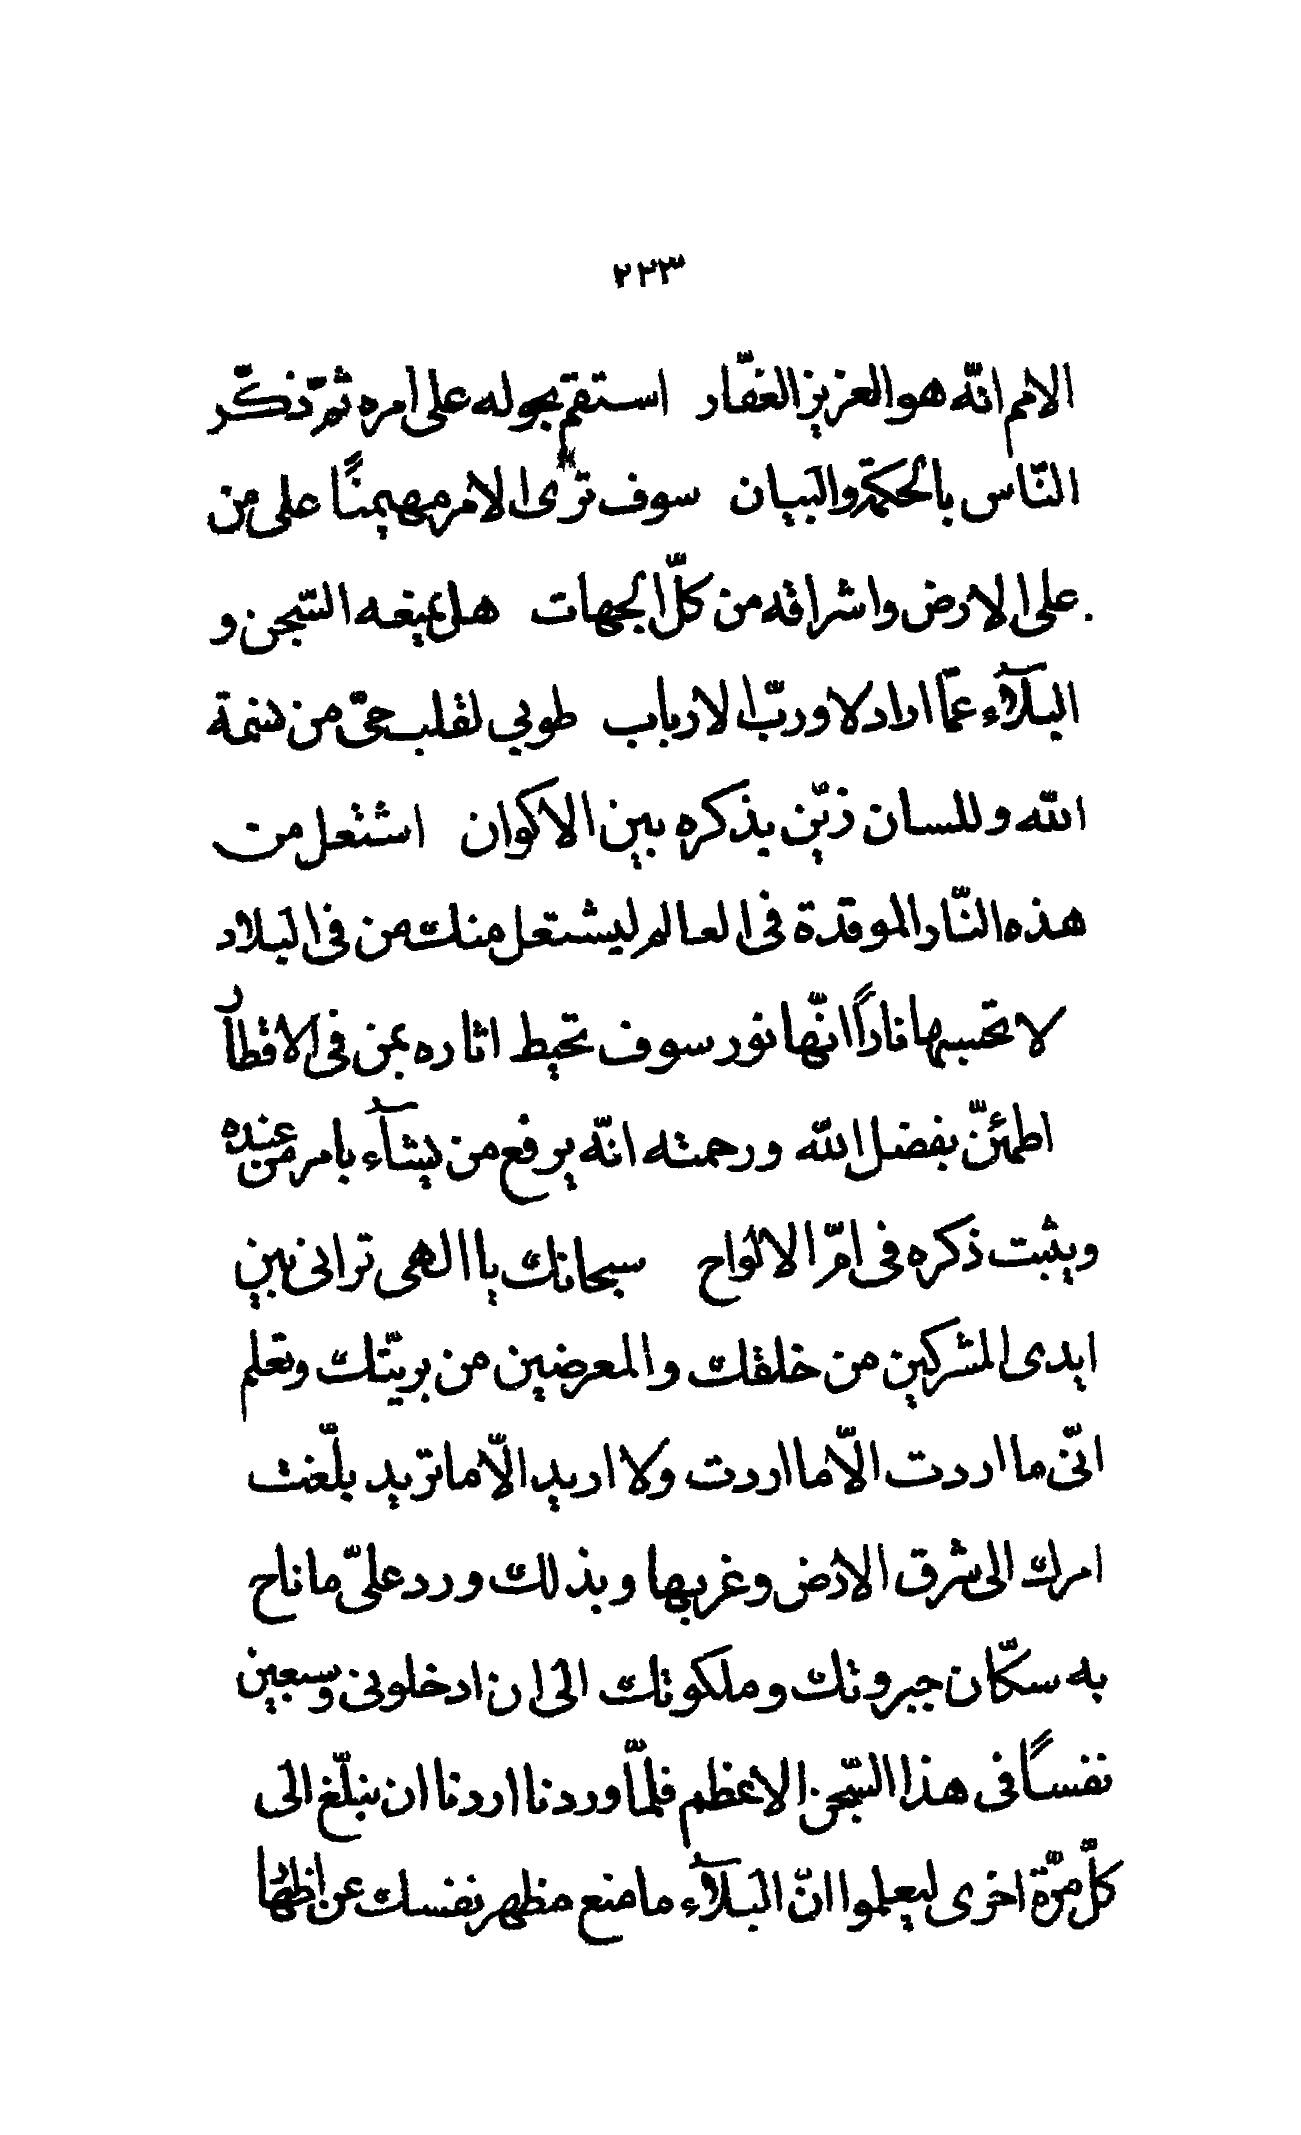 ٢٢٣
الامم انّه هو العزيز الغفّار استقم بحوله على امره ثمّ ذكّر
النّاس بالحكمة والبيان سوف ترى الامر مهيمنًا على من
على الارض واشراقه من كلّ الجهات هل يمنعه السّجن و
البلآء عمّا اراد لا وربّ الارباب طوبى لقلب حىّ من نسمة
الله وللسان زيّن بذكره بين الاكوان اشتعل من
هذه النّار الموقدة فى العالم ليشتعل منك من فى البلاد
لا تحسبها ناراً انّها نور سوف تحيط اثاره بمن فى الاقطار
اطمئنّ بفضل الله ورحمته انّه يرفع من يشآء بامر من عنده
ويثبت ذكره فى امّ الالواح سبحانك يا الهى ترانى بين
ايدى المشركين من خلقك والمعرضين من بريّتك وتعلم
انّى ما اردت الّا ما اردت ولا اريد الّا ما تريد بلّغت
امرك الى شرق الارض وغربها وبذلك ورد علىّ ما ناح
به سكّان جبروتك وملكوتك الى ان ادخلونى وسبعين
نفساً فى هذا السّجن الاعظم فلمّا وردنا اردنا ان نبلّغ الى
كلّ مرّة اخرى ليعلموا انّ البلآء ما منع مظهر نفسك عن اظهار